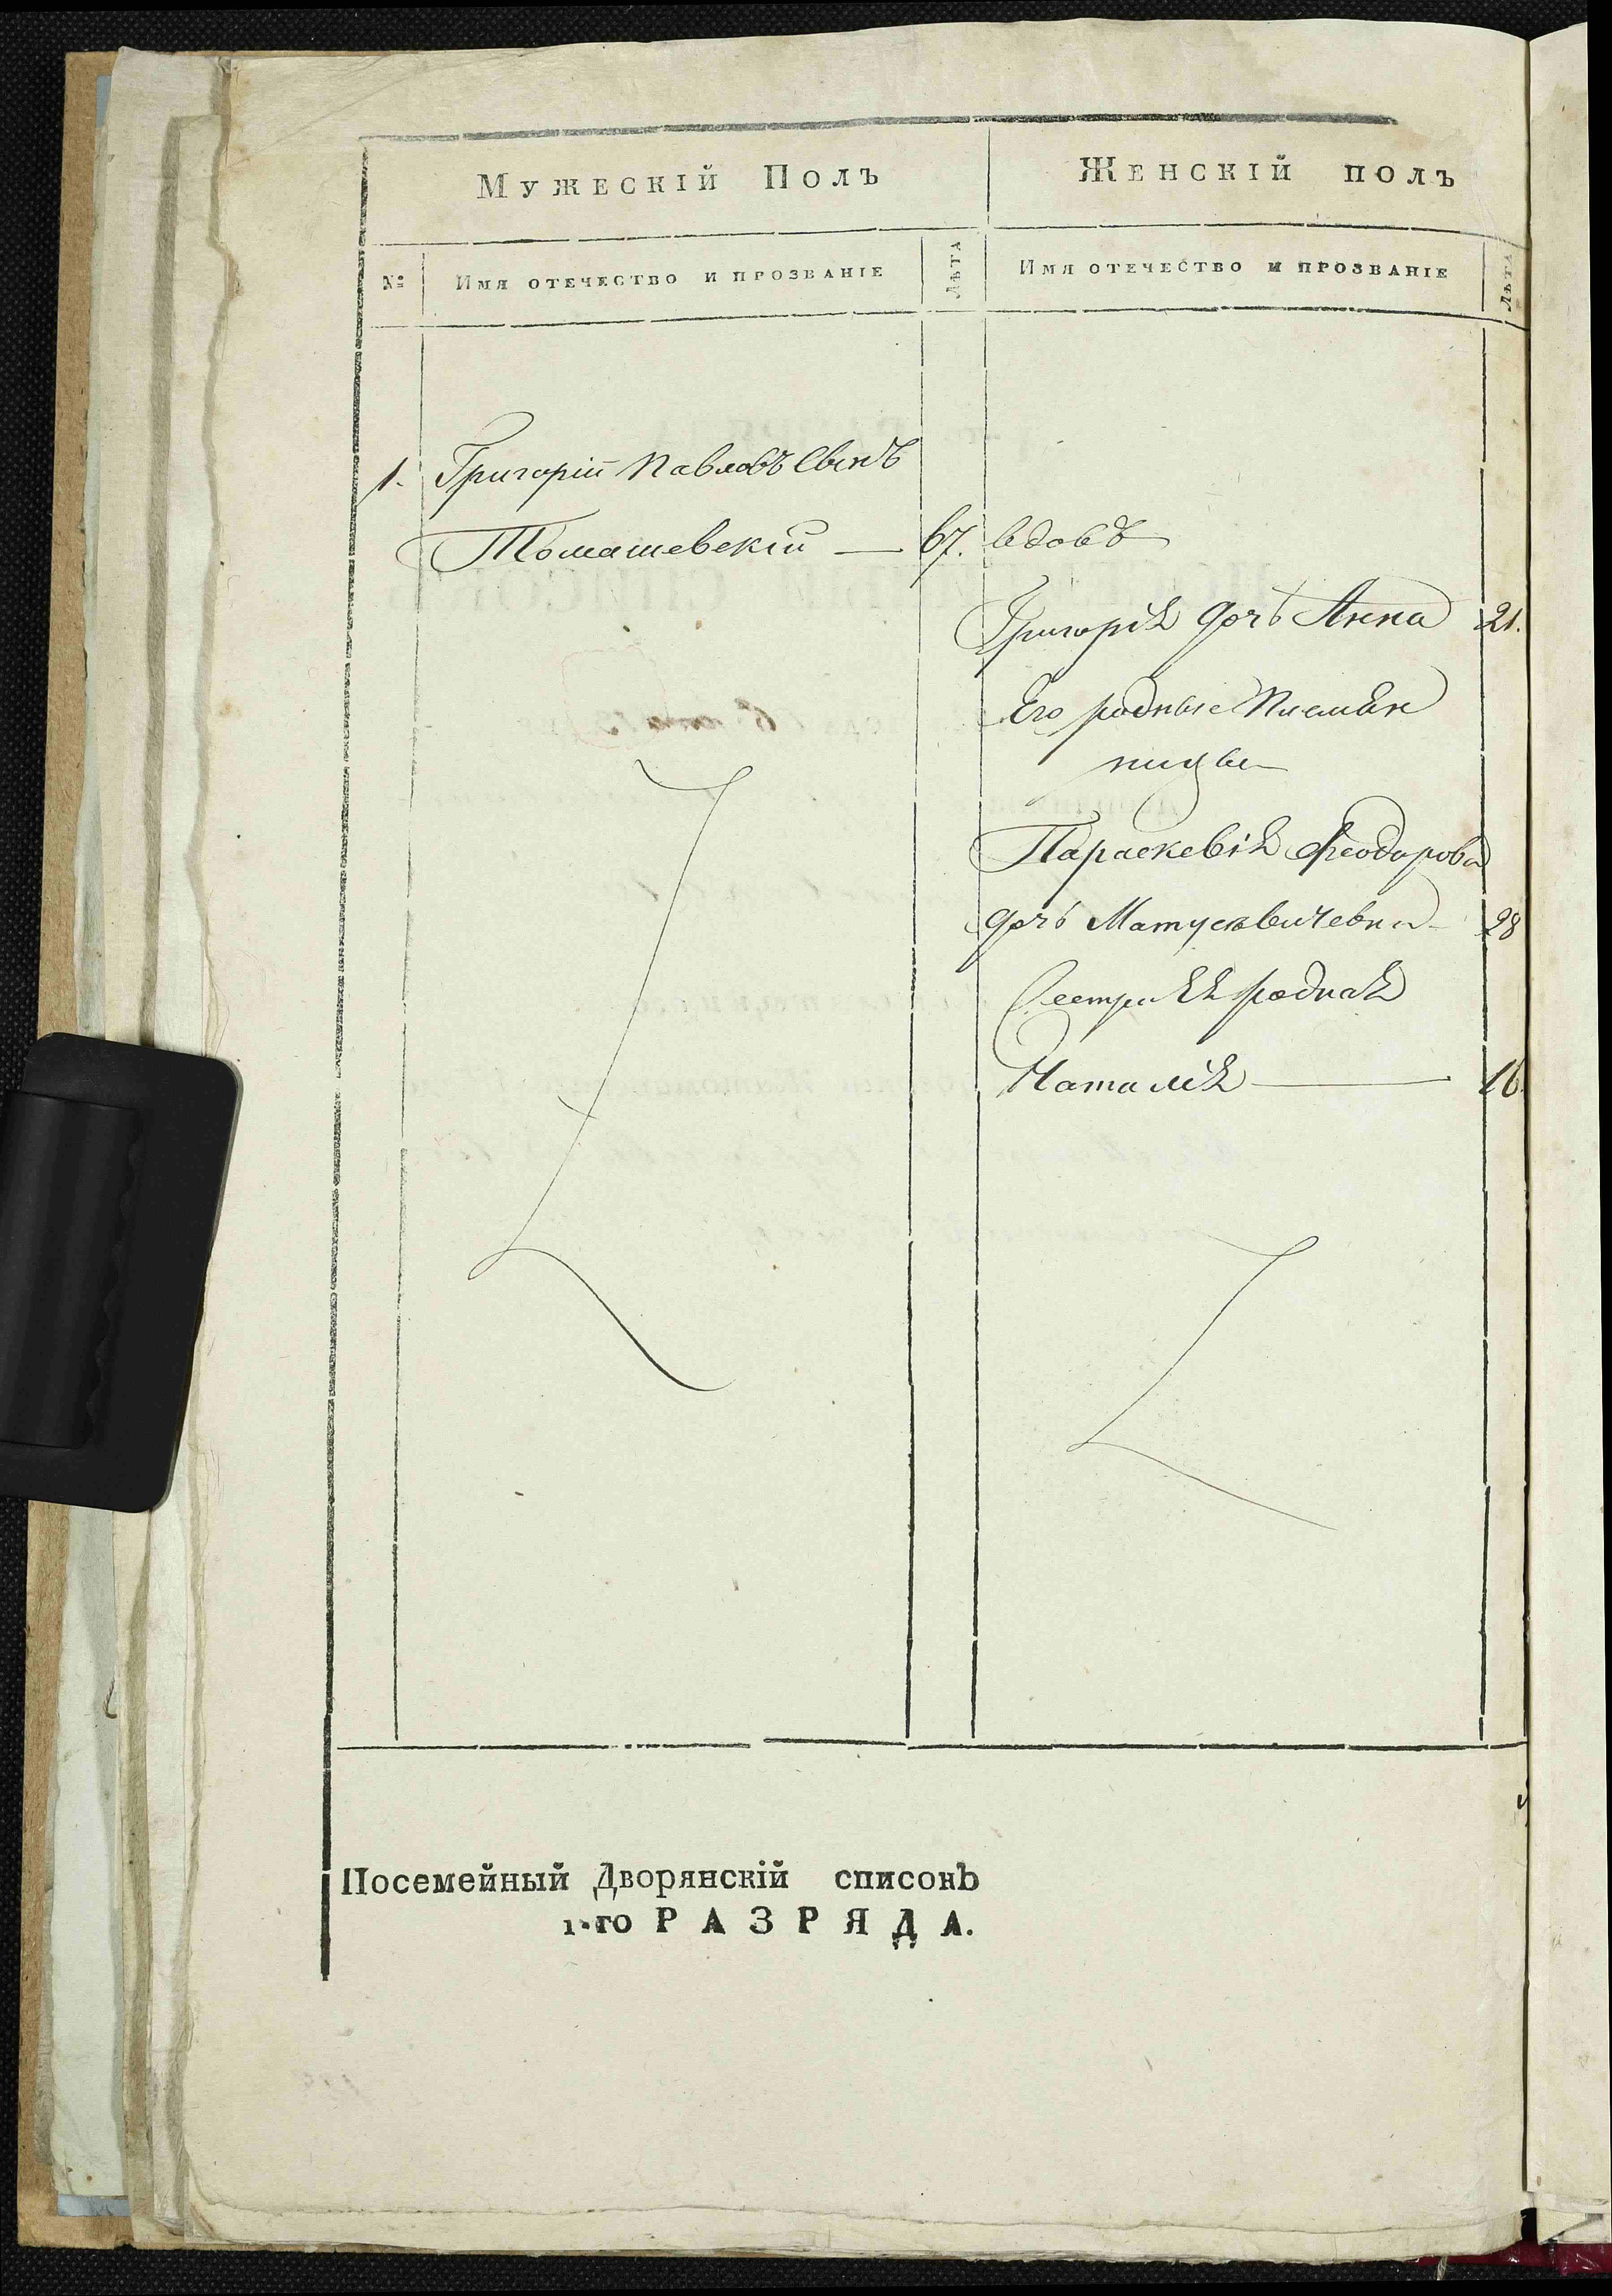 Мужескій Полъ
Женскій полъ
№
Имя отечество и прозваніе
Лѣта
Имя отечество и прозваніе
Лѣта
1. Григорій Павловъ Сынъ
Томашевскій — 67. вдовъ
Григорія дочь Анна 21.
Его родные Племян
ницы
Параскевія Феодорова
дочь Матусѣвичевна 28
Сестра Ея родная
Наталія — 16.
Посемейный Дворянскій списокъ
1-го РАЗРЯДА.